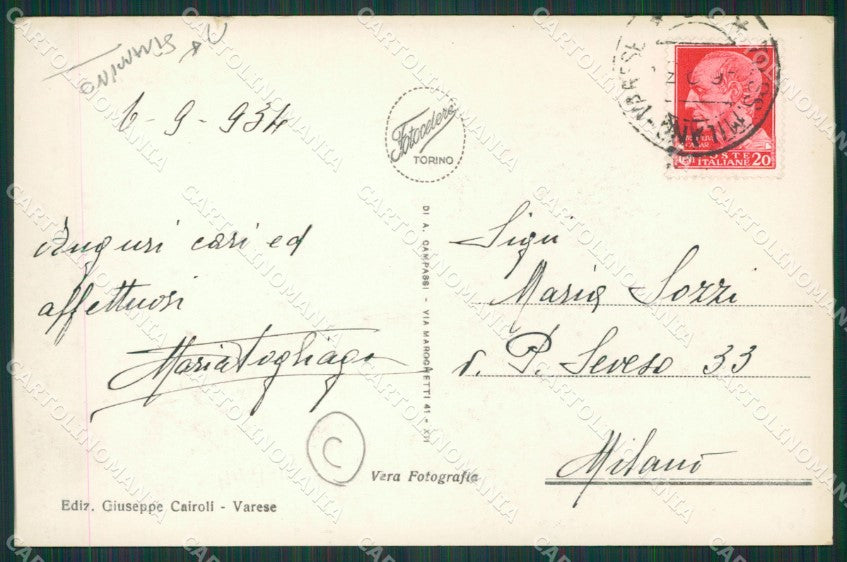 6-9-934
Fotocelere
TORINO
POSTE
ITALIANE 20
MILANO-VARESE
Auguri cari ed
affettuosi
Maria Togliago
DI A. CAMPASSI - VIA MAROCHETTI 41 - XII
Maria Sozzi
v. P. Seveso 33
Milano
C
Vera Fotografia
Ediz. Giuseppe Cairoli - Varese
CARTOLINOMANIA